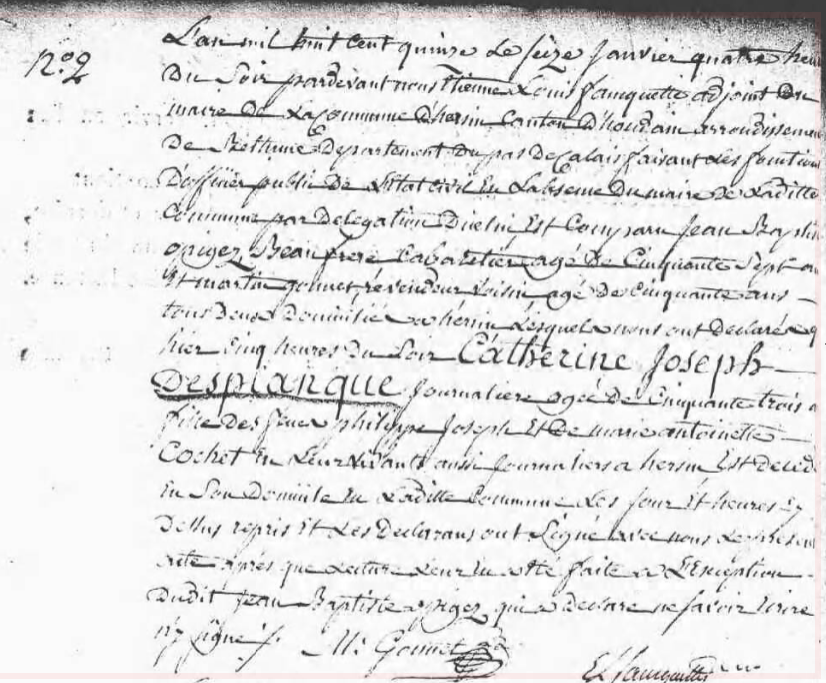 N.º 2
L'an mil huit cent quinze le seize janvier quatre heu
Du Soir pardevant nous Etienne Louis fauquette adjoint Du
maire De La Commune D'hersin Canton D'houdain arrondissemen
De Bethune Departement Du pas De Calais faisant Les fonction
D'officier public De L'Etat Civil En L'absence Du maire De Laditte
Commune par Delegation Dicelui Est Comparu Jean Baptis
opigez Beau frere Cabaretier agé De Cinquante Sept an
Et martin gonnet revendeur voisin agé De Cinquante ans
tous Deux Domiciliés a hersin Lesquels nous ont Declaré q
hier Cinq heures Du Soir Catherine Joseph
Desplanque Journaliere agée De Cinquante trois a
fille Des feux philippe Joseph Et De marie antoinette
Cochet En Leur vivant aussi Journaliers a hersin Est Decedé
En Son Domicile En Laditte Commune Les Jour Et heures Cy
Dessus repris Et Les Declarans ont Signé avec nous Le presen
acte après que Lecture Leur En a Eté faite a L'Exception
Dudit Jean Baptiste opigez qui a Declaré ne savoir Ecrire
n'y signé
M: Gonnet
E L fauquette